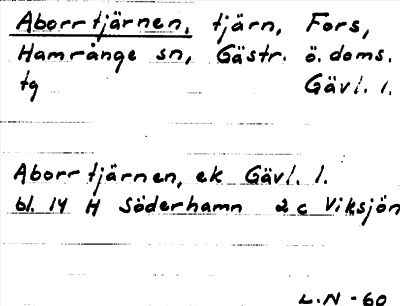 Aborrtjärnen, tjärn, Fors,
Hamrånge sn, Gästr. ö. doms.
tg Gävl. l.
Aborrtjärnen, ek Gävl. l.
bl. 14 H Söderhamn 2 c Viksjön
L.N - 60